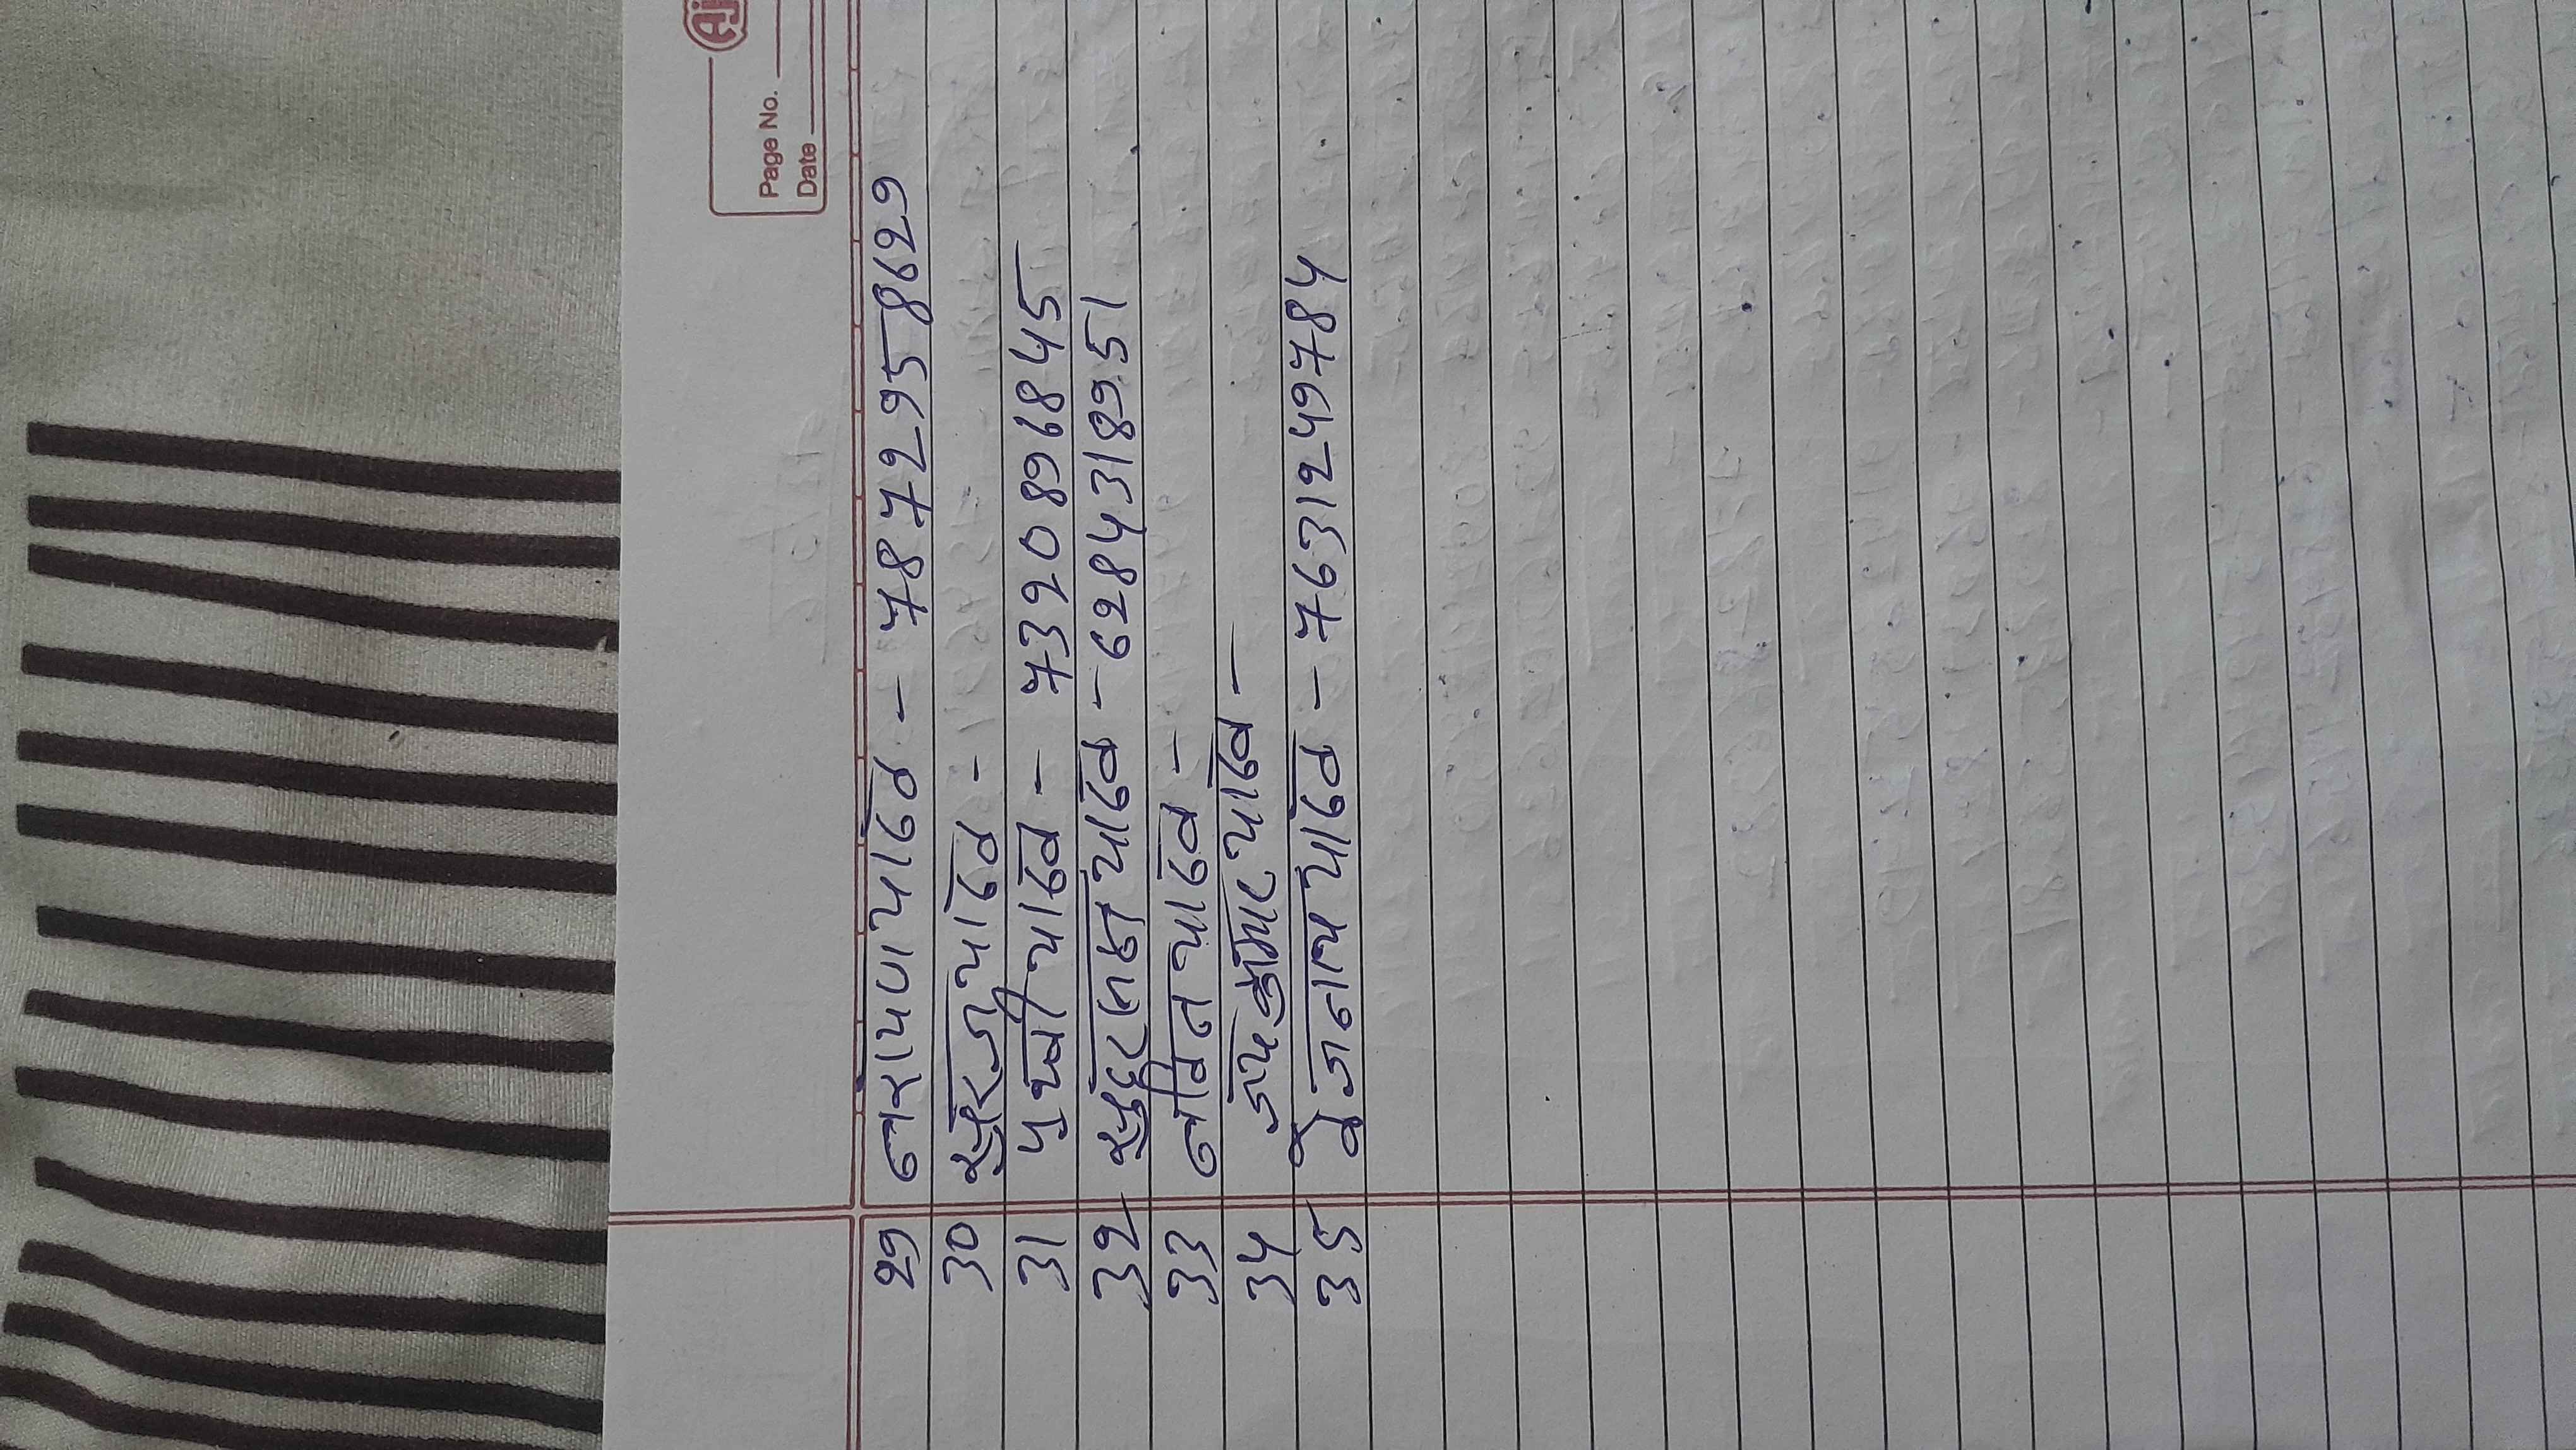 Aj
Page No.
Date
29 नारायण यादव - 7872958629
30 सुरज यादव -
31 पृथ्वी यादव - 7320896845
32 सुदर्लाल यादव - 6284318951
33 नविन यादव -
34 जयकुमार यादव -
35 बैजनाथ यादव - 7631249784